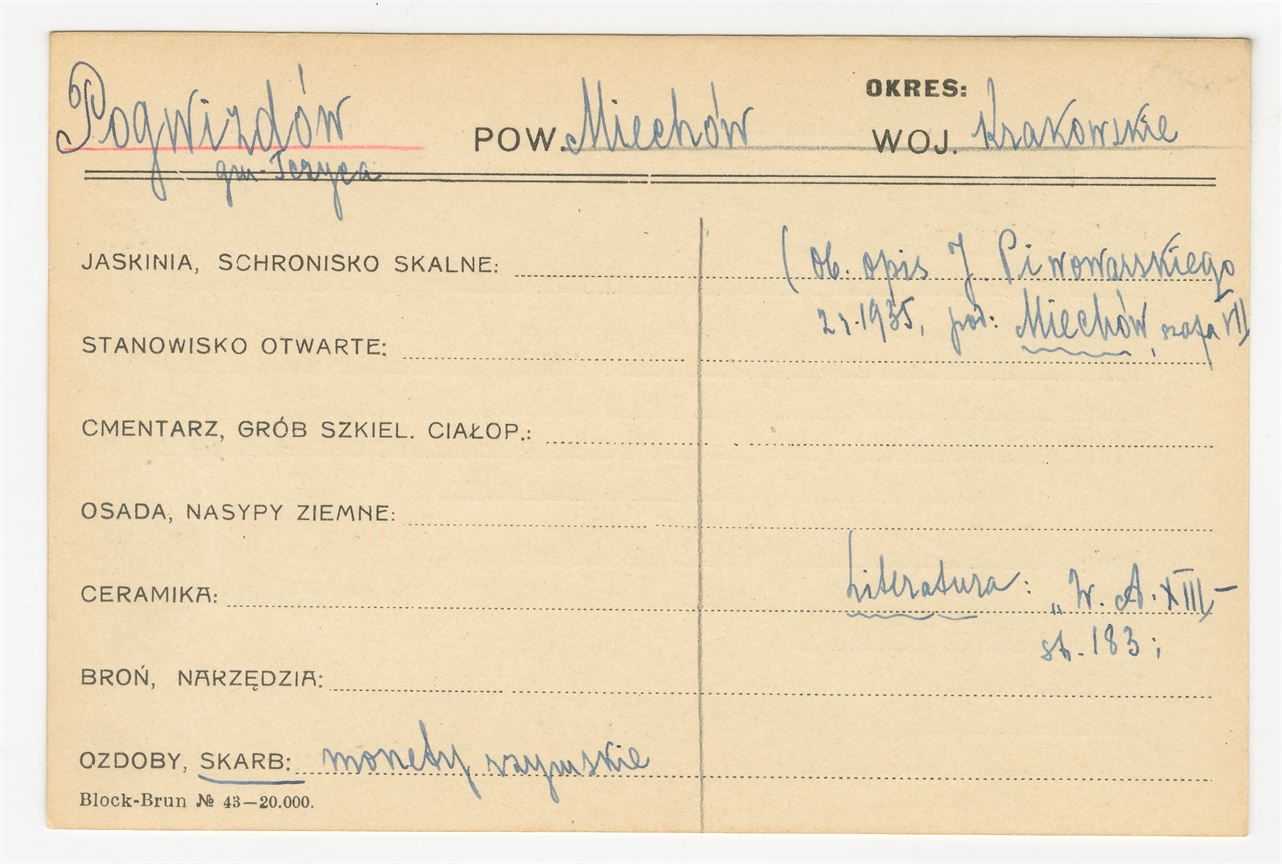 OKRES:
Pogwizdów POW. Miechów WOJ. Krakowskie
gm. Tczyca
JASKINIA, SCHRONISKO SKALNE: (ob. opis J. Piwowarskiego
z r. 1935, pod: Miechów, szafa VII)
STANOWISKO OTWARTE:
CMENTARZ, GRÓB SZKIEL. CIAŁOP.:
OSADA, NASYPY ZIEMNE:
CERAMIKA: Literatura: „W. A. XIII –
st. 183;
BROŃ, NARZĘDZIA:
OZDOBY, SKARB: monety rzymskie
Block-Brun № 43—20.000.